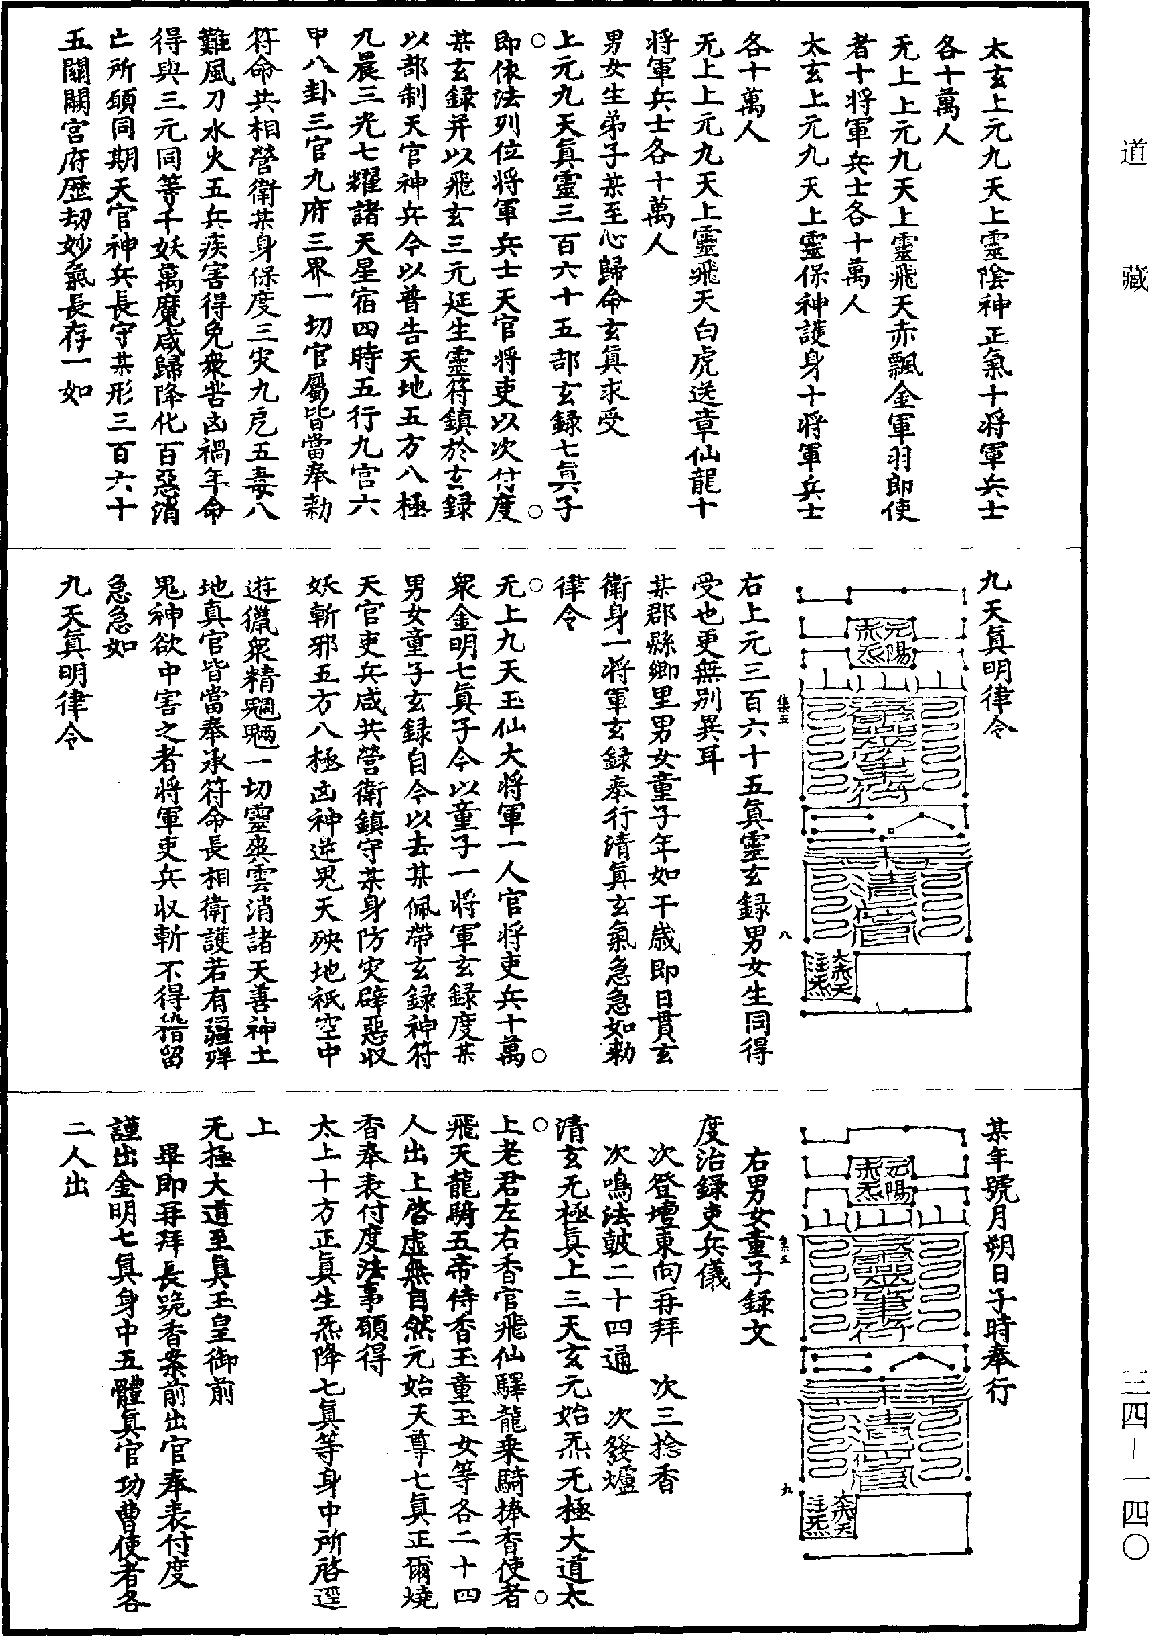 道藏
太玄上元九天上靈陰神正氣十將軍兵士
各十萬人
无上上元九天上靈飛天赤飄金軍羽郎使
者十將軍兵士各十萬人
太玄上元九天上靈保神護身十將軍兵士
各十萬人
无上上元九天上靈飛天白虎送章仙龍十
將軍兵士各十萬人
男女生弟子某至心歸命玄真求受
上元九天真靈三百六十五部玄録七真子
即依法列位將軍兵士天官將吏以次付度
某玄録并以飛玄三元延生靈符鎮於玄録
以部制天官神兵今以普告天地五方八極
九晨三光七耀諸天星宿四時五行九宫六
甲八卦三官九府三界一切官屬皆當奉勑
符命共相營衛某身保度三灾九厄五毒八
難風刀水火五兵疾害得免衆苦凶禍年命
得與三元同等千妖萬魔咸歸降化百惡消
亡所願同期天官神兵長守某形三百六十
五關關宫府歷劫妙氣長存一如
九天真明律令
元陽
赤炁
太炁天
注炁
右上元三百六十五真靈玄録男女生同得
受也更無别異耳
某郡縣鄉里男女童子年如干歲即日貫玄
衛身一將軍玄録奉行清真玄氣急急如勑
律令
无上九天玉仙大將軍一人官將吏兵十萬
衆金明七真子今以童子一將軍玄録度某
男女童子玄録自今以去某佩帶玄録神符
天官吏兵咸共營衛鎮守某身防灾辟惡收
妖斬邪五方八極凶神逆鬼天殃地祇空中
遊獵衆精魍魎一切靈與雲消諸天善神土
地真官皆當奉承符命長相衛護若有彊殍
鬼神欲中害之者將軍吏兵收斬不得稽留
急急如
九天真明律令
集五
八
某年號月朔日子時奉行
元陽
赤炁
太炁天
注炁
右男女童子録文
度治録吏兵儀
次登壇東向再拜　次三捻香
次鳴法鼓二十四通　次發爐
清玄无極真上三天玄元始炁无極大道太
上老君左右香官飛仙驛龍乘騎捧香使者
飛天龍騎五帝侍香玉童玉女等各二十四
人出上啓虚無自然元始天尊七真正爾燒
香奉表付度法事願得
太上十方正真生炁降七真等身中所啓逕
上
无極大道至真玉皇御前
畢即再拜長跪香案前出官奉表付度
謹出金明七真身中五體真官功曹使者各
二人出
集五
九
三四－一四〇